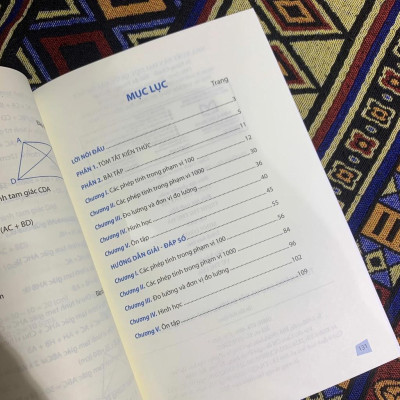 A
D
tam giác CDA
(AC + BD)
MỤC LỤC
Trang
LỜI NÓI ĐẦU 3
PHẦN 1. TÓM TẮT KIẾN THỨC 5
PHẦN 2. BÀI TẬP 11
Chương I. Các phép tính trong phạm vi 100 12
Chương II. Các phép tính trong phạm vi 1000 30
Chương III. Đo lường và đơn vị đo lường 36
Chương IV. Hình học 40
Chương V. Ôn tập 45
HƯỚNG DẪN GIẢI - ĐÁP SỐ 55
Chương I. Các phép tính trong phạm vi 100 56
Chương II. Các phép tính trong phạm vi 1000 84
Chương III. Đo lường và đơn vị đo lường 96
Chương IV. Hình học 102
Chương V. Ôn tập 109
121